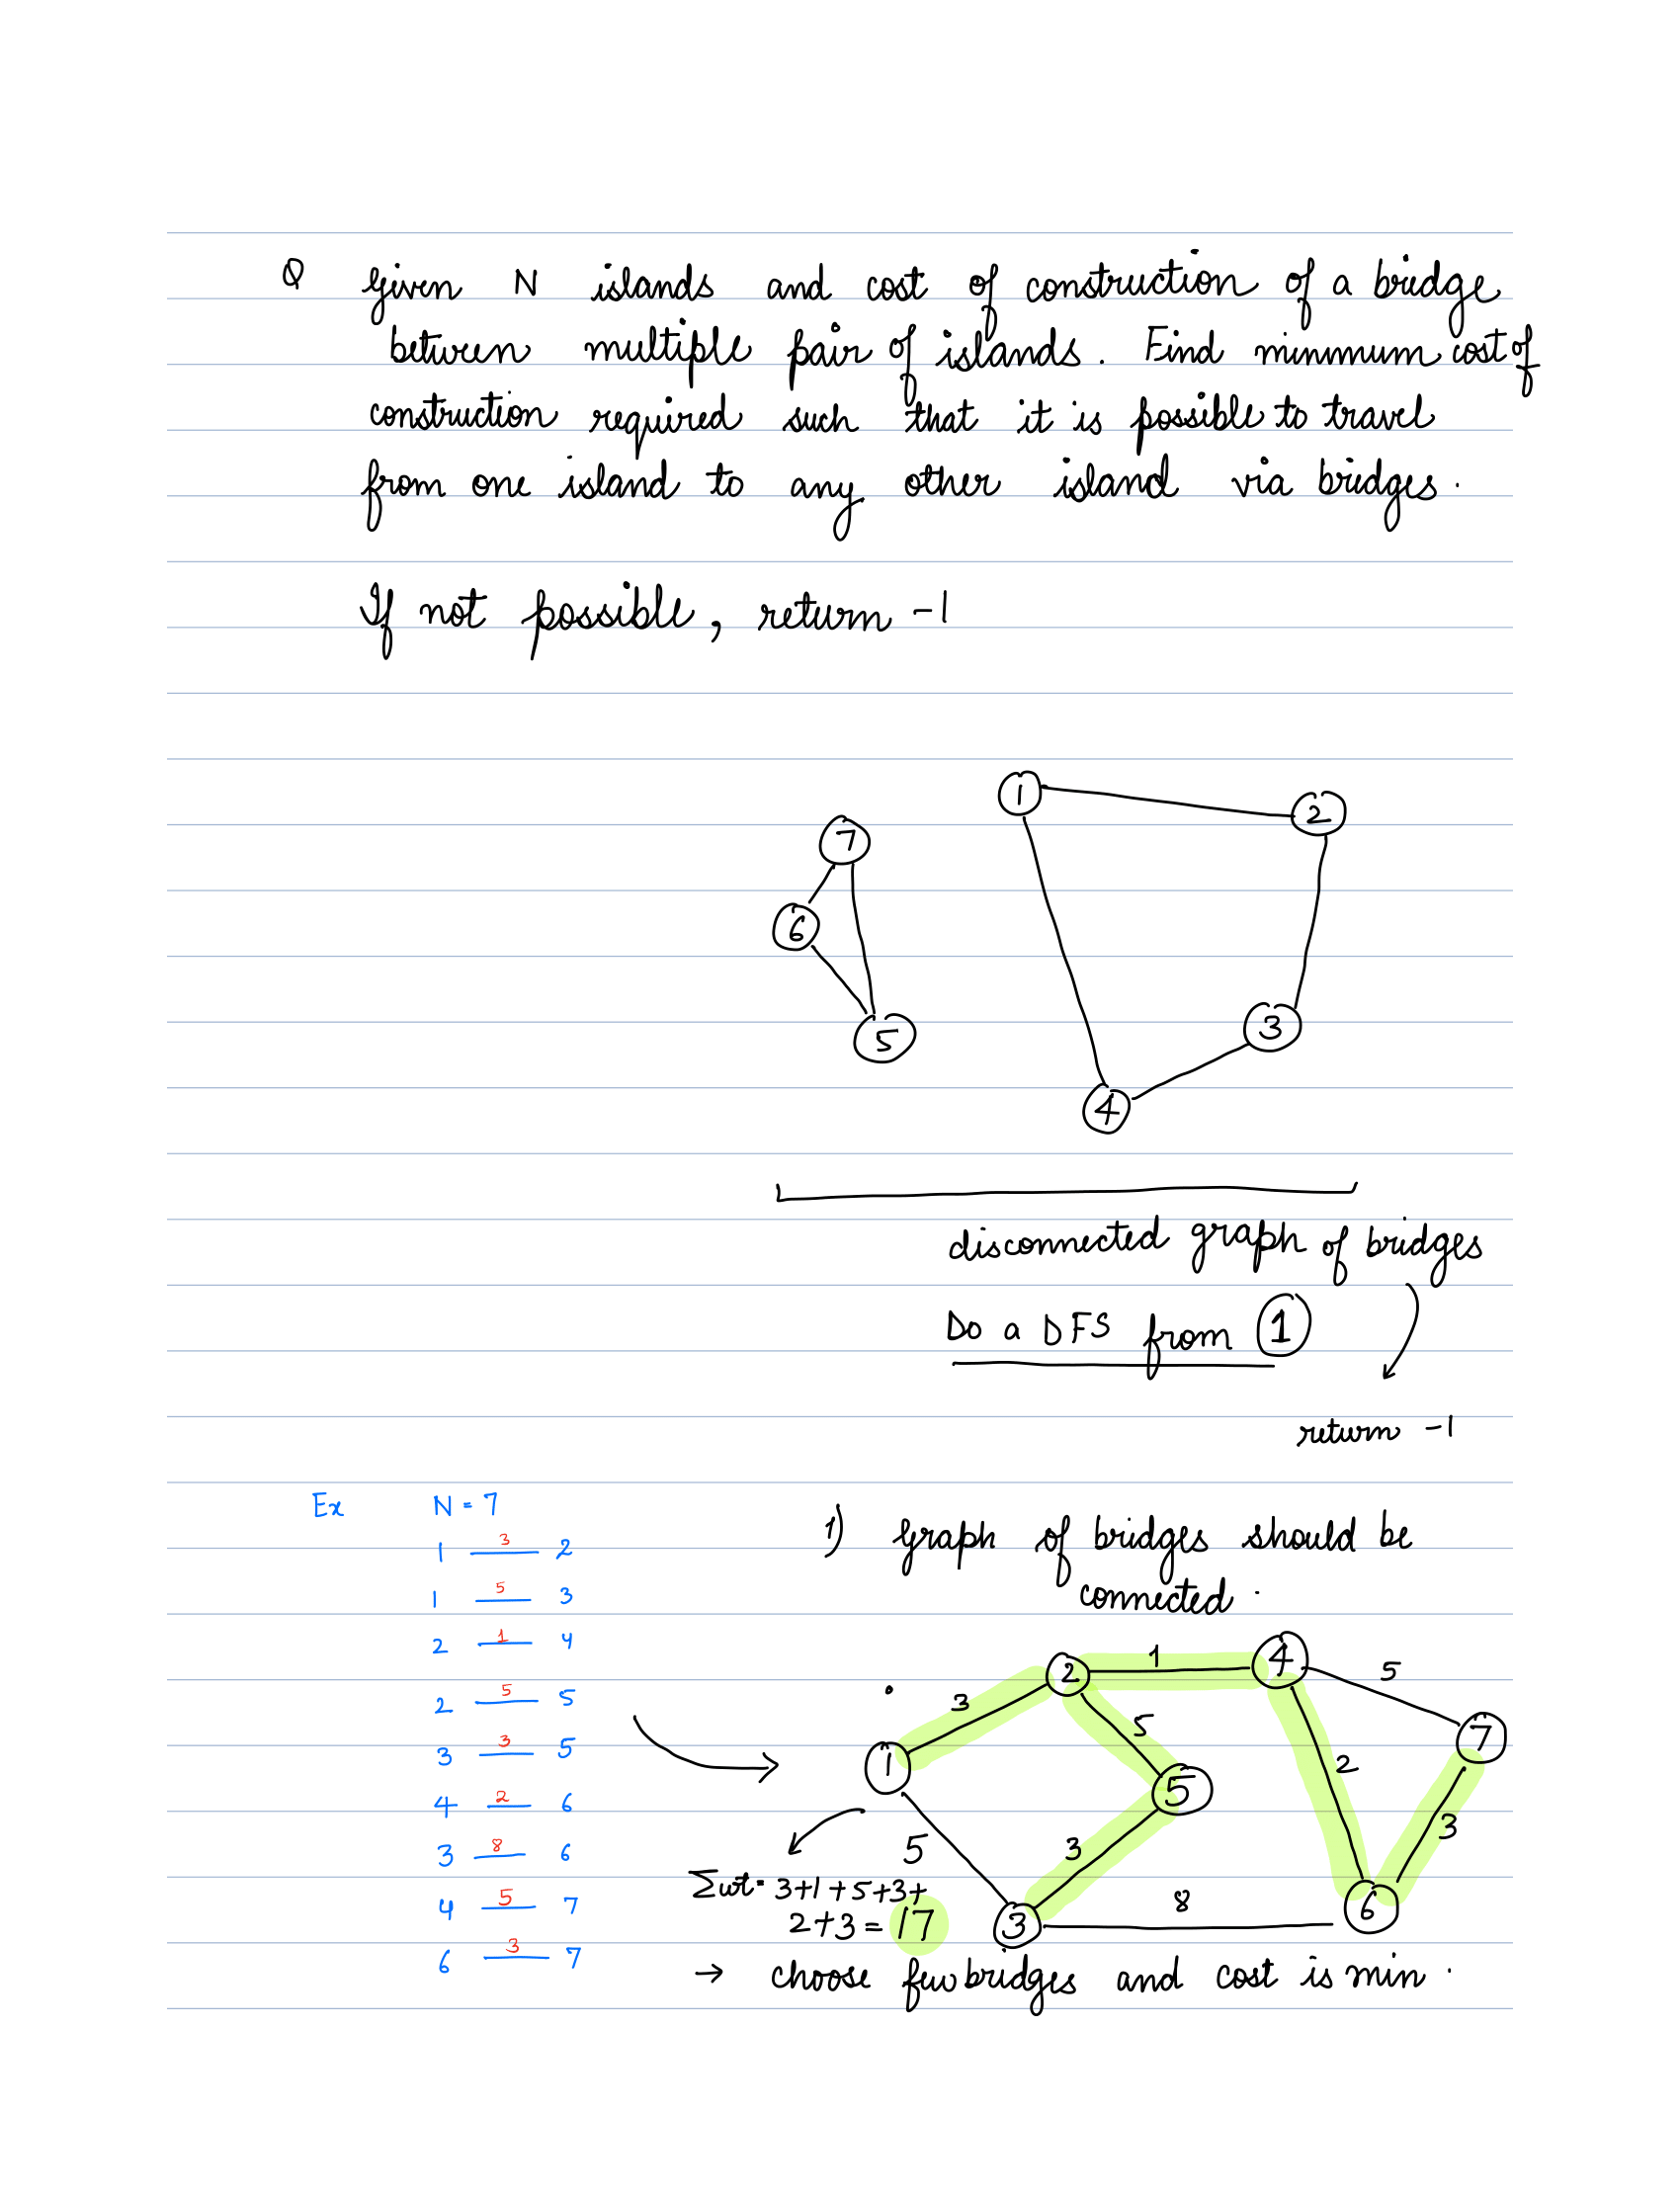 Q Given N islands and cost of construction of a bridge
between multiple pair of islands. Find minmum cost of
construction required such that it is possible to travel
from one island to any other island via bridges.
If not possible, return -1
1
2
7
6
3
5
4
disconnected graph of bridges
Do a DFS from 1
return -1
Ex N = 7
1 3 2
1 5 3
2 1 4
2 5 5
3 3 5
4 2 6
3 8 6
4 5 7
6 3 7
1) Graph of bridges should be
connected.
2 1 4 5
3 5 7
1 5 2
5 3 3
8 6
3
Σwt = 3+1+5+3+
2+3 = 17
→ choose few bridges and cost is min.